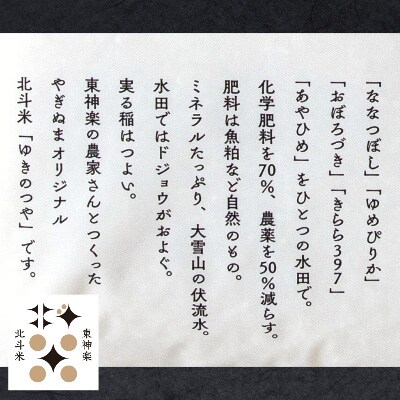 「ななつぼし」「ゆめぴりか」
「おぼろづき」「きらら397」
「あやひめ」をひとつの水田で。
化学肥料を70%、農薬を50%減らす。
肥料は魚粕など自然のもの。
ミネラルたっぷり、大雪山の伏流水。
水田ではドジョウがおよぐ。
実る稲はつよい。
東神楽の農家さんとつくった
やぎぬまオリジナル
北斗米「ゆきのつや」です。
東神楽
北斗米